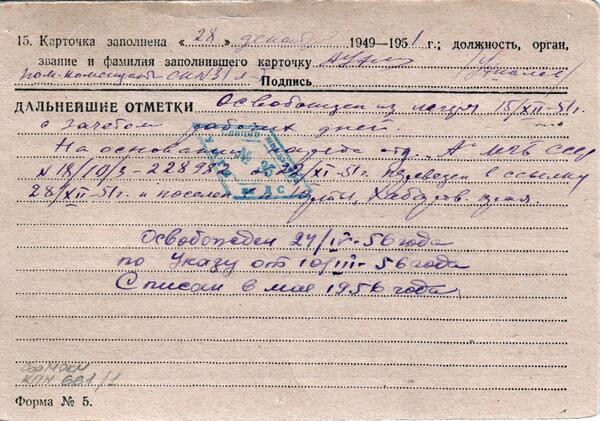 15. Карточка заполнена « 28 » декабр 1949—1951 г.; должность, орган,
звание и фамилия заполнившего карточку
Подпись
ДАЛЬНЕЙШИЕ ОТМЕТКИ Освобожден из лагеря 15/XII-51г.
с зачетом рабочих дней.
На основании отд. „А" МГБ СССР
N 18/10/3-22898 /XI-51г. переведен в ссылку
28/XII-51г. и поселен Хабаров. края.
№ 25
Освобожден 24/IV-56 года
по Указу от 10/III-56 года
Списан в мае 1956 года
КПН 661/1
Форма № 5.